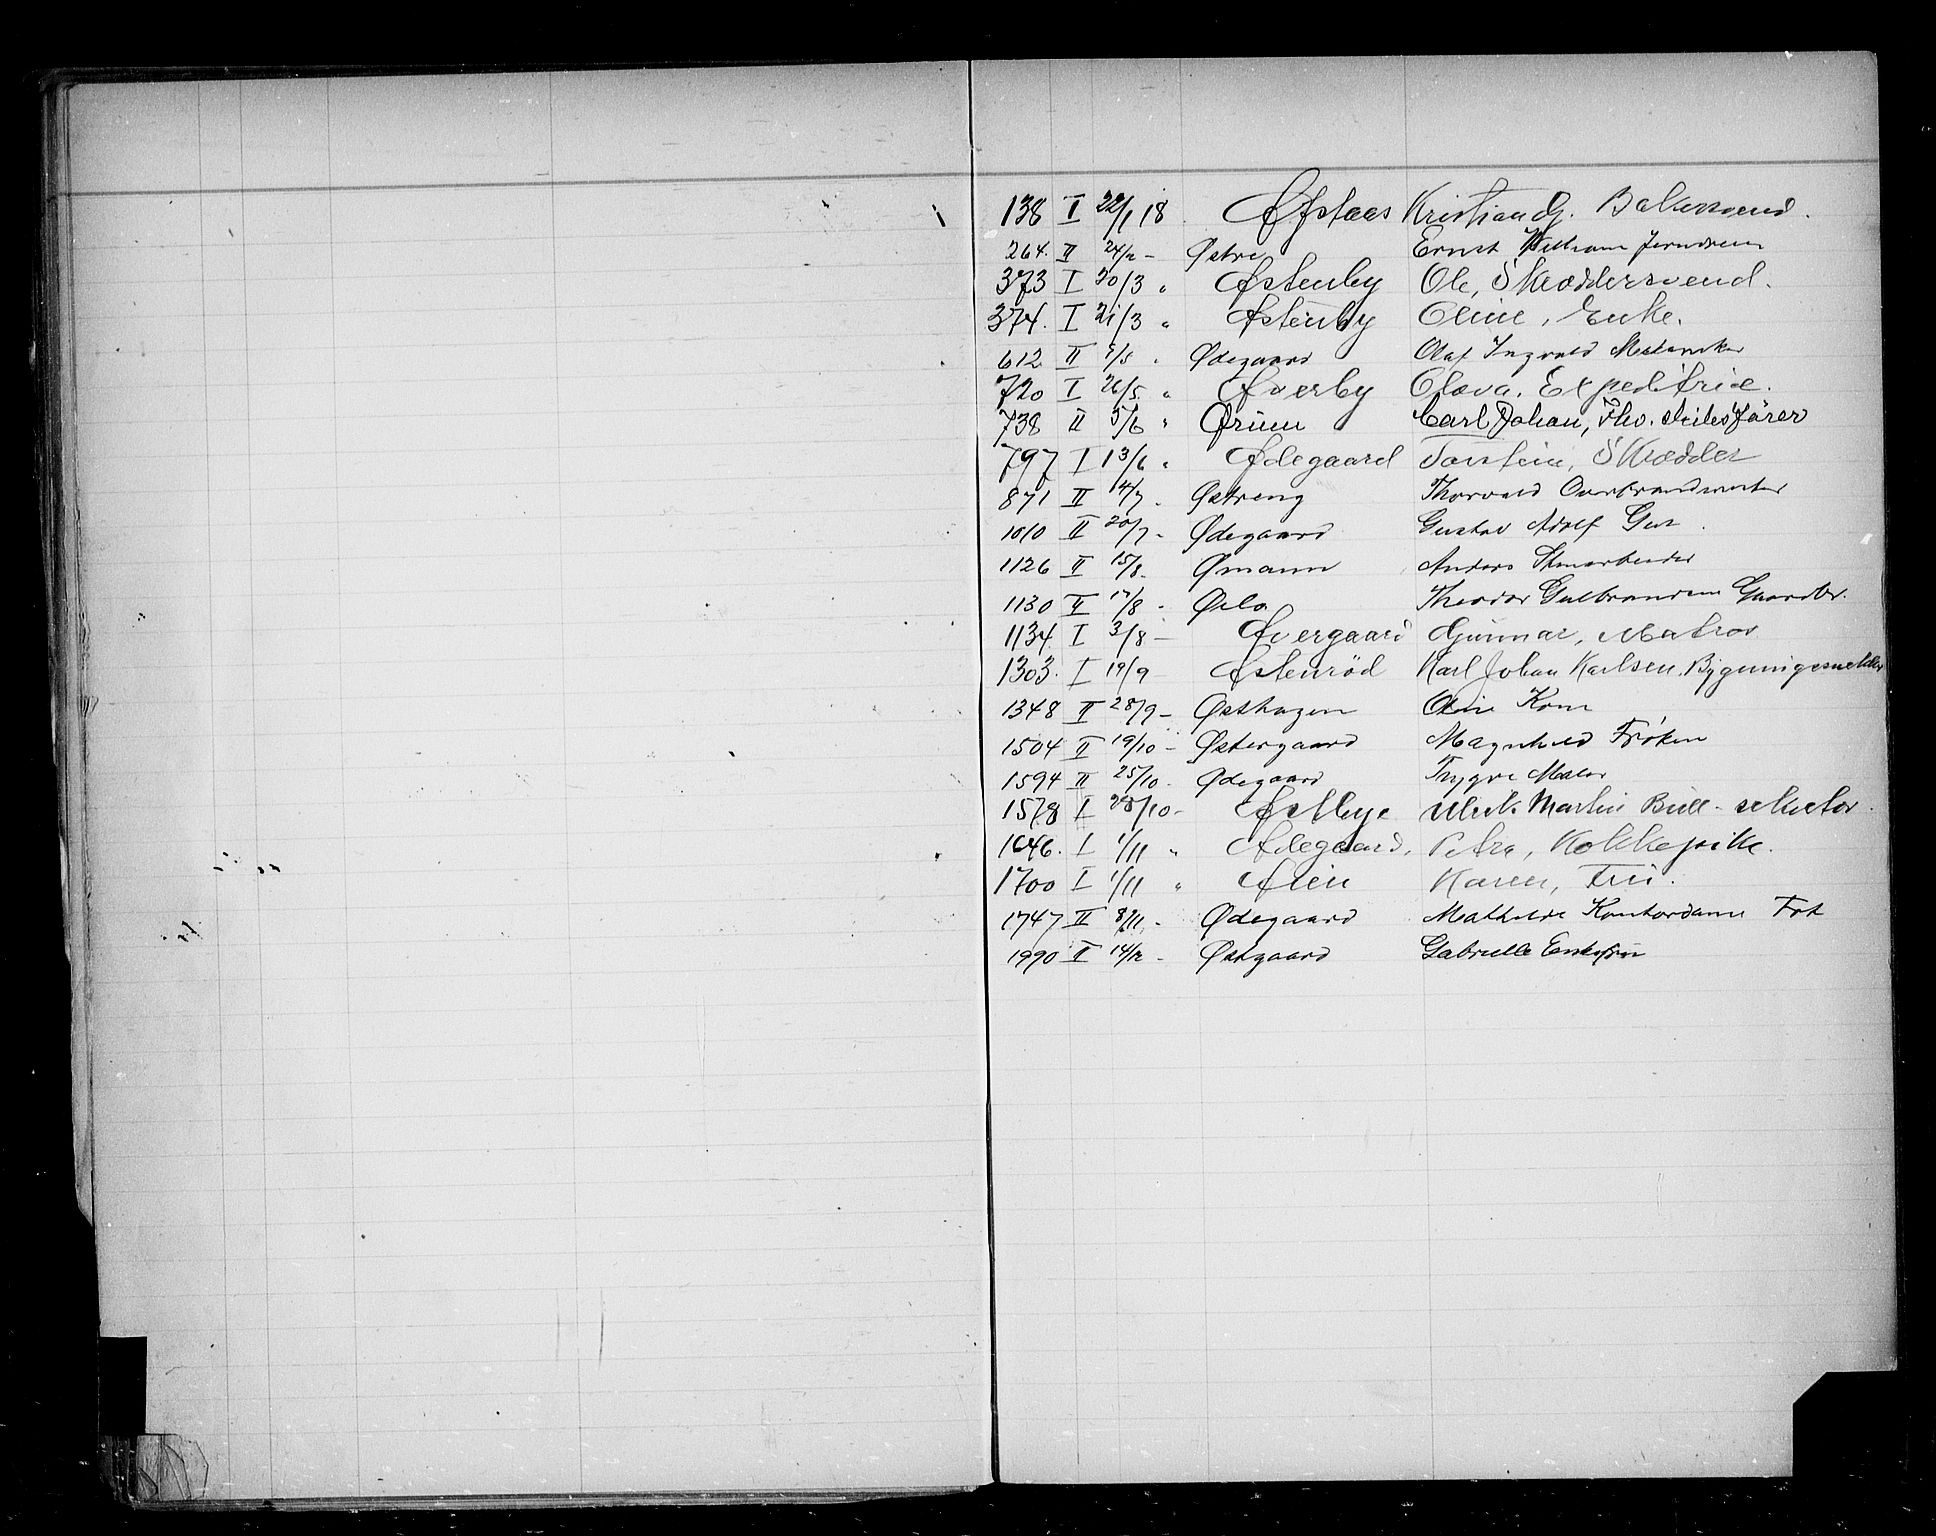 138 I 22/1 18 Øfstaas Kristian G. Bakersvend.
264. II 24/2 - Østre Ernst William
373 I 20/3 " Østenby Ole, Skræddersvend.
374. I 21/3 " Østenby Oline, Enke.
612 II Ødegaard Olaf Ingvald Mekaniker
720 I 26/5 " Øverby Olava. Expeditrice.
738 II 5/6 " Ørum Carl Johan, fhv.
797 I 13/6 " Ødegaard Torstein, Skrædder
871 II 14/7 . Østreng Thorvald Overbrandmester
1010 II 20/7 - Ødegaard Gustav Adolf Gut.
1126 II 15/8 - Ømann Anders
1130 II 17/8 - Øslo Theodor Gulbrandsen Gaardbr.
1134. I 3/8 - Øvergaard Gunnar, Matros
1303. I 19/9 Østenrød Karl Johan Karlsen, Bygningssnekker
1348 II 28/9 - Østhagen Kone
1504 II 19/10 - Østergaard Magnhild Frøken
1594 II 25/10 - Ødegaard Trygve Maler
1578 I 28/10 - Østbye Ulrik Martin Bull -
1646. I 1/11 " Ødegaard, Petra, Kokkepike.
1700 I 1/11 " Øien Karen, Fru.
1747 II 8/11 - Ødegaard Mathilde Kontordame Frk
1990 II 14/12 - Østgaard Gabrielle Enkefrue